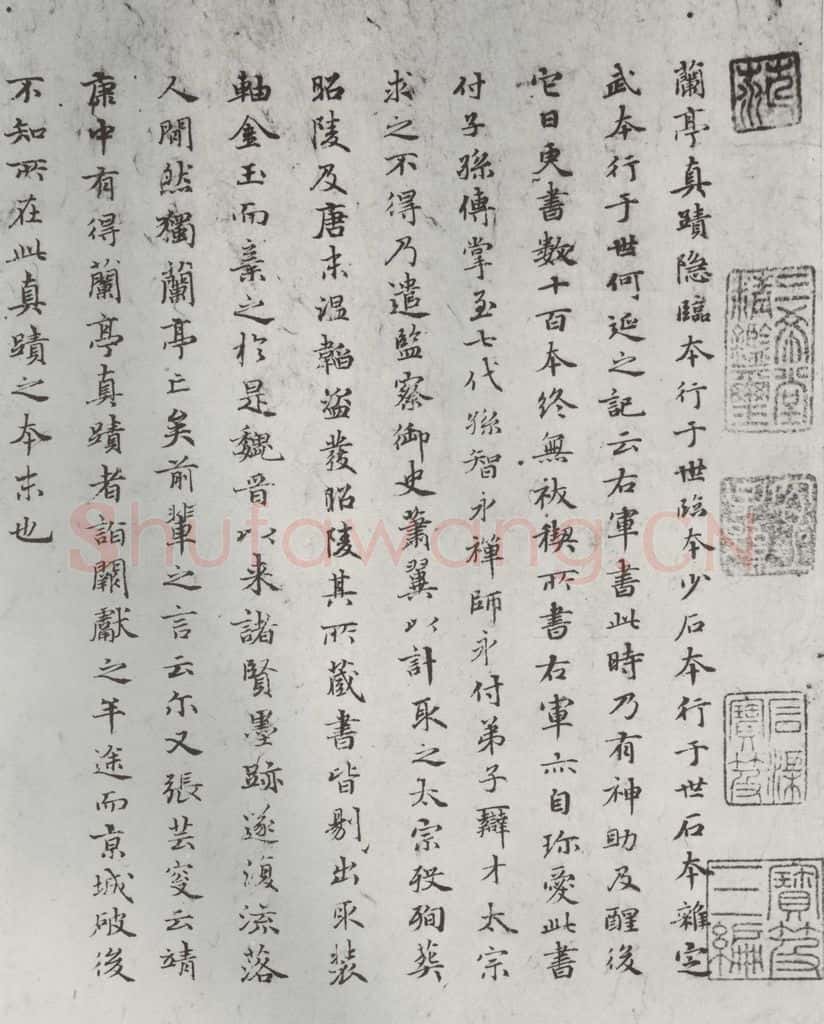 蘭亭真蹟隐臨本行于世臨本少石本行于世石本雜定
武本行于世何延之記云右軍書此時乃有神助及醒後
它日更書數十百本終無祓禊所書右軍亦自珎愛此書
付子孫傳掌至七代孫智永禅師永付弟子辯才太宗
求之不得乃遣監察御史蕭翼以計取之太宗殁殉葬
昭陵及唐末温韜盗發昭陵其所蔵書皆剔出取装
軸金玉而棄之於是魏晋以来諸賢墨跡遂復流落
人間然獨蘭亭亡矣前輩之言云尔又張芸叟云靖
康中有得蘭亭真蹟者詣闕獻之半途而京城破後
不知所在此真蹟之本末也
三希堂精鑑璽
寶笈三編
Shufawang.CN